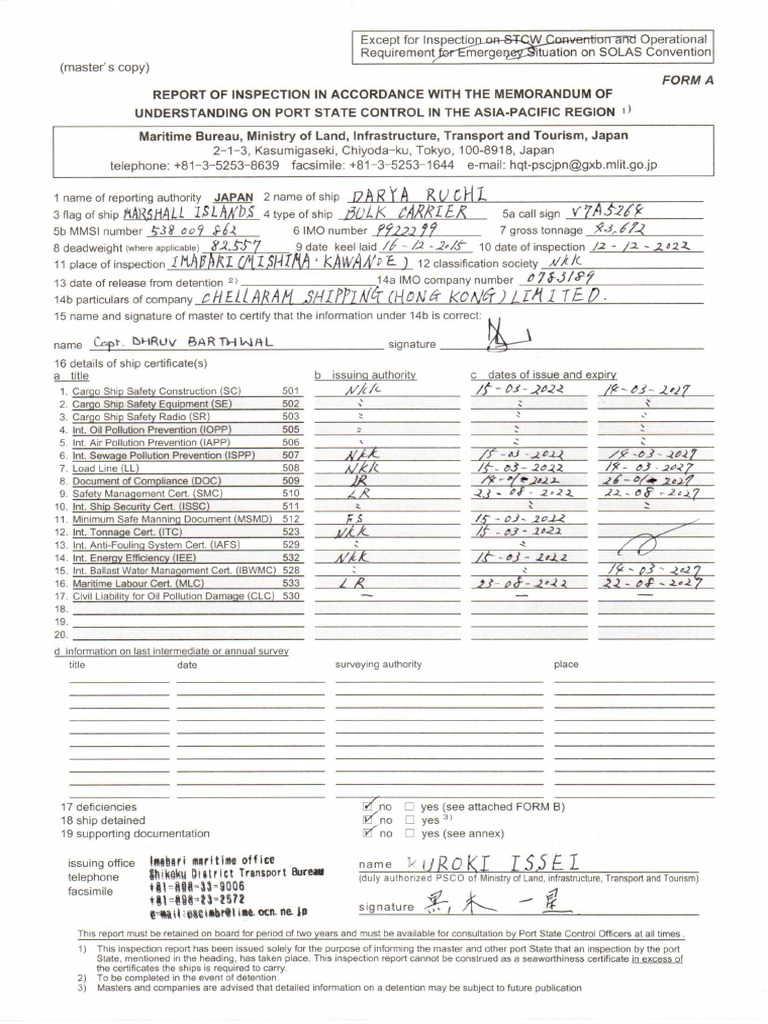 Except for Inspection on STCW Convention and Operational
Requirement for Emergency Situation on SOLAS Convention
(master's copy)
FORM A
REPORT OF INSPECTION IN ACCORDANCE WITH THE MEMORANDUM OF
UNDERSTANDING ON PORT STATE CONTROL IN THE ASIA-PACIFIC REGION 1)
Maritime Bureau, Ministry of Land, Infrastructure, Transport and Tourism, Japan
2-1-3, Kasumigaseki, Chiyoda-ku, Tokyo, 100-8918, Japan
telephone: +81-3-5253-8639 facsimile: +81-3-5253-1644 e-mail: hqt-pscjpn@gxb.mlit.go.jp
1 name of reporting authority JAPAN 2 name of ship DARYA RUCHI
3 flag of ship MARSHALL ISLANDS 4 type of ship BULK CARRIER 5a call sign V7A5264
5b MMSI number 538 009 862 6 IMO number 9922299 7 gross tonnage 43,692
8 deadweight (where applicable) 82,557 9 date keel laid 16-12-2015 10 date of inspection 12-12-2022
11 place of inspection IMABARI (MISHIMA-KAWANOE) 12 classification society NKK
13 date of release from detention 2) 14a IMO company number 0783189
14b particulars of company CHELLARAM SHIPPING (HONG KONG) LIMITED.
15 name and signature of master to certify that the information under 14b is correct:
name Capt. DHRUV BARTHWAL signature
16 details of ship certificate(s)
a title b issuing authority c dates of issue and expiry
1. Cargo Ship Safety Construction (SC) 501 NKK 15-03-2022 14-03-2027
2. Cargo Ship Safety Equipment (SE) 502 〃 〃 〃
3. Cargo Ship Safety Radio (SR) 503 〃 〃 〃
4. Int. Oil Pollution Prevention (IOPP) 505 〃 〃 〃
5. Int. Air Pollution Prevention (IAPP) 506 〃 〃 〃
6. Int. Sewage Pollution Prevention (ISPP) 507 NKK 15-03-2022 14-03-2027
7. Load Line (LL) 508 NKK 15-03-2022 14-03-2027
8. Document of Compliance (DOC) 509
9. Safety Management Cert. (SMC) 510 LR 23-08-2022 22-08-2027
10. Int. Ship Security Cert. (ISSC) 511 〃 〃 〃
11. Minimum Safe Manning Document (MSMD) 512 FS 15-03-2022
12. Int. Tonnage Cert. (ITC) 523 NKK 15-03-2022
13. Int. Anti-Fouling System Cert. (IAFS) 529 〃 〃
14. Int. Energy Efficiency (IEE) 532 NKK 15-03-2022
15. Int. Ballast Water Management Cert. (IBWMC) 528 〃 〃 14-03-2027
16. Maritime Labour Cert. (MLC) 533 LR 23-08-2022 22-08-2027
17. Civil Liability for Oil Pollution Damage (CLC) 530 — — —
18.
19.
20.
d information on last intermediate or annual survey
title date surveying authority place
17 deficiencies ☑ no ☐ yes (see attached FORM B)
18 ship detained ☑ no ☐ yes 3)
19 supporting documentation ☑ no ☐ yes (see annex)
issuing office Imabari maritime office
Shikoku District Transport Bureau
telephone +81-898-33-9006
facsimile +81-898-23-2572
e-mail:pscimbr@lime.ocn.ne.jp
name KUROKI ISSEI
(duly authorized PSCO of Ministry of Land, infrastructure, Transport and Tourism)
signature 黒木 一星
This report must be retained on board for period of two years and must be available for consultation by Port State Control Officers at all times.
1) This inspection report has been issued solely for the purpose of informing the master and other port State that an inspection by the port
State, mentioned in the heading, has taken place. This inspection report cannot be construed as a seaworthiness certificate in excess of
the certificates the ships is required to carry.
2) To be completed in the event of detention.
3) Masters and companies are advised that detailed information on a detention may be subject to future publication